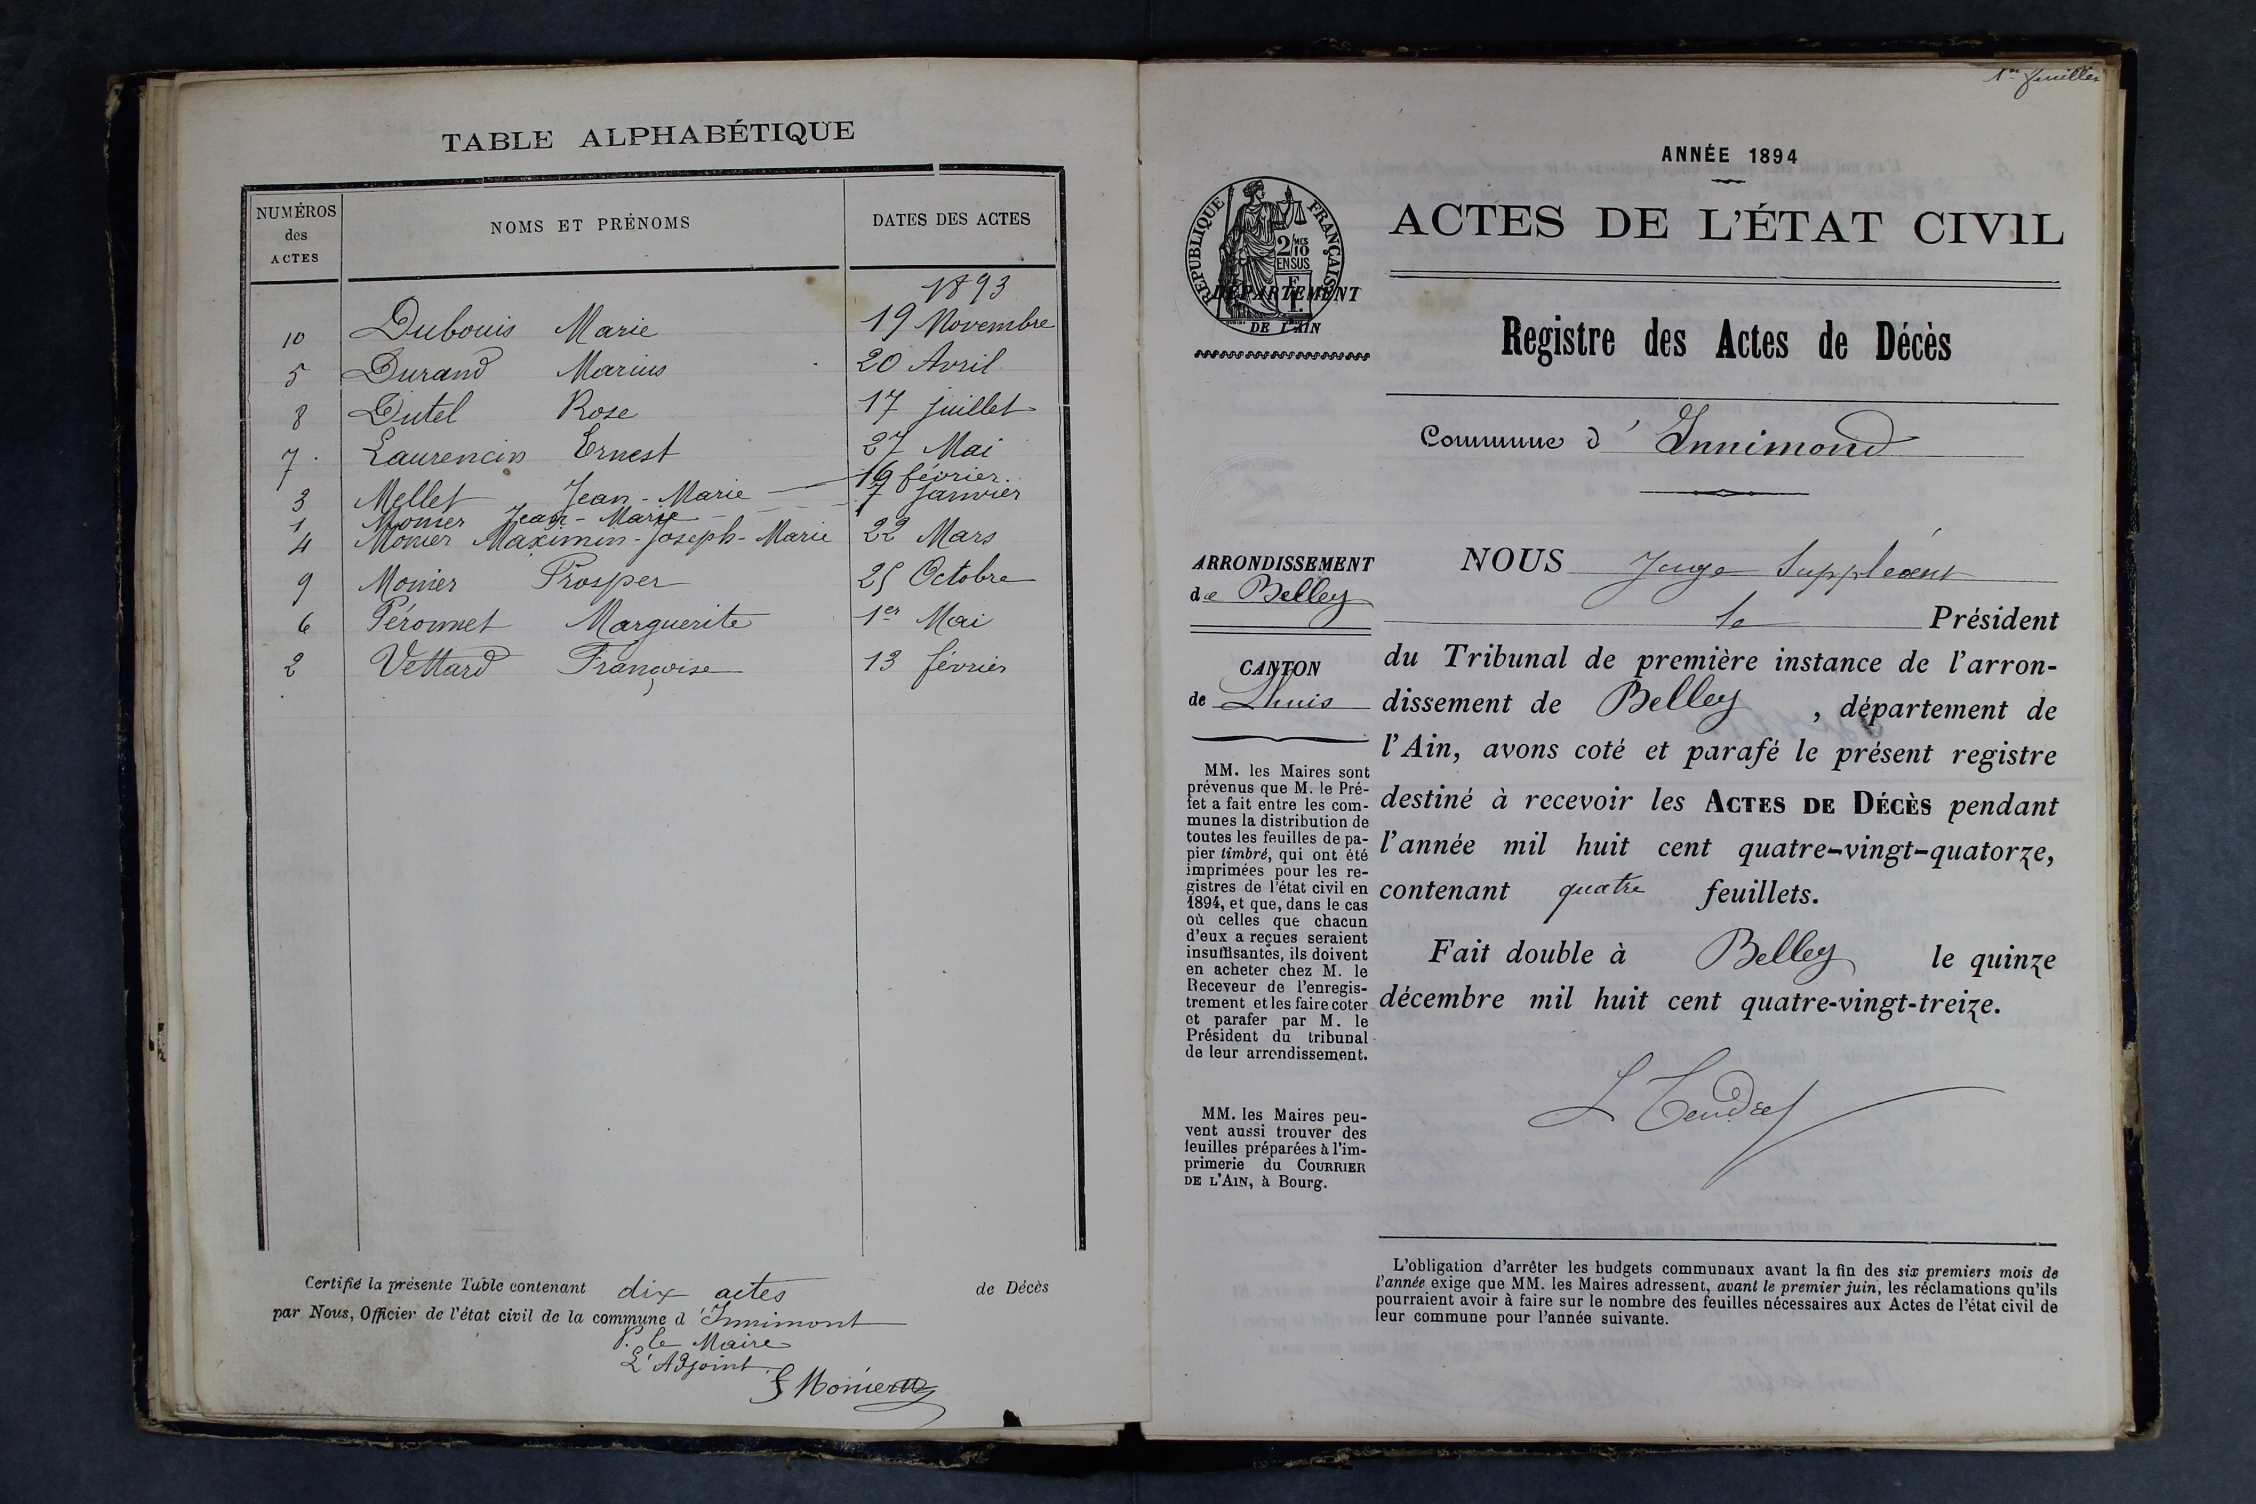 TABLE ALPHABÉTIQUE
NUMÉROS des ACTES NOMS ET PRÉNOMS DATES DES ACTES
1893
10 Dubouis Marie 19 Novembre
5 Durand Marius 20 Avril
8 Dutel Rose 17 juillet
7 Laurencin Ernest 27 Mai
3 Mellet Jean-Marie 19 février
1 Monier Jean-Marie 7 janvier
4 Monier Maximin-Joseph-Marie 22 Mars
9 Monier Prosper 25 Octobre
6 Péronnet Marguerite 1er Mai
2 Vettard Françoise 13 février
Certifié la présente Table contenant dix actes de Décès
par Nous, Officier de l'état civil de la commune d'Innimont
P. le Maire
L'Adjoint
Monier
1er feuillet
ANNÉE 1894
RÉPUBLIQUE FRANÇAISE
2/10 MES
EN SUS
DÉPARTEMENT
DE L'AIN
ACTES DE L'ÉTAT CIVIL
Registre des Actes de Décès
Commune d'Innimond
ARRONDISSEMENT
de Belley
CANTON
de Lhuis
MM. les Maires sont
prévenus que M. le Pré-
fet a fait entre les com-
munes la distribution de
toutes les feuilles de pa-
pier timbré, qui ont été
imprimées pour les re-
gistres de l'état civil en
1894, et que, dans le cas
où celles que chacun
d'eux a reçues seraient
insuffisantes, ils doivent
en acheter chez M. le
Receveur de l'enregis-
trement et les faire coter
et parafer par M. le
Président du tribunal
de leur arrondissement.
MM. les Maires peu-
vent aussi trouver des
feuilles préparées à l'im-
primerie du COURRIER
DE L'AIN, à Bourg.
NOUS Juge Suppléant
le Président
du Tribunal de première instance de l'arron-
dissement de Belley, département de
l'Ain, avons coté et parafé le présent registre
destiné à recevoir les ACTES DE DÉCÈS pendant
l'année mil huit cent quatre-vingt-quatorze,
contenant quatre feuillets.
Fait double à Belley le quinze
décembre mil huit cent quatre-vingt-treize.
L'obligation d'arrêter les budgets communaux avant la fin des six premiers mois de
l'année exige que MM. les Maires adressent, avant le premier juin, les réclamations qu'ils
pourraient avoir à faire sur le nombre des feuilles nécessaires aux Actes de l'état civil de
leur commune pour l'année suivante.